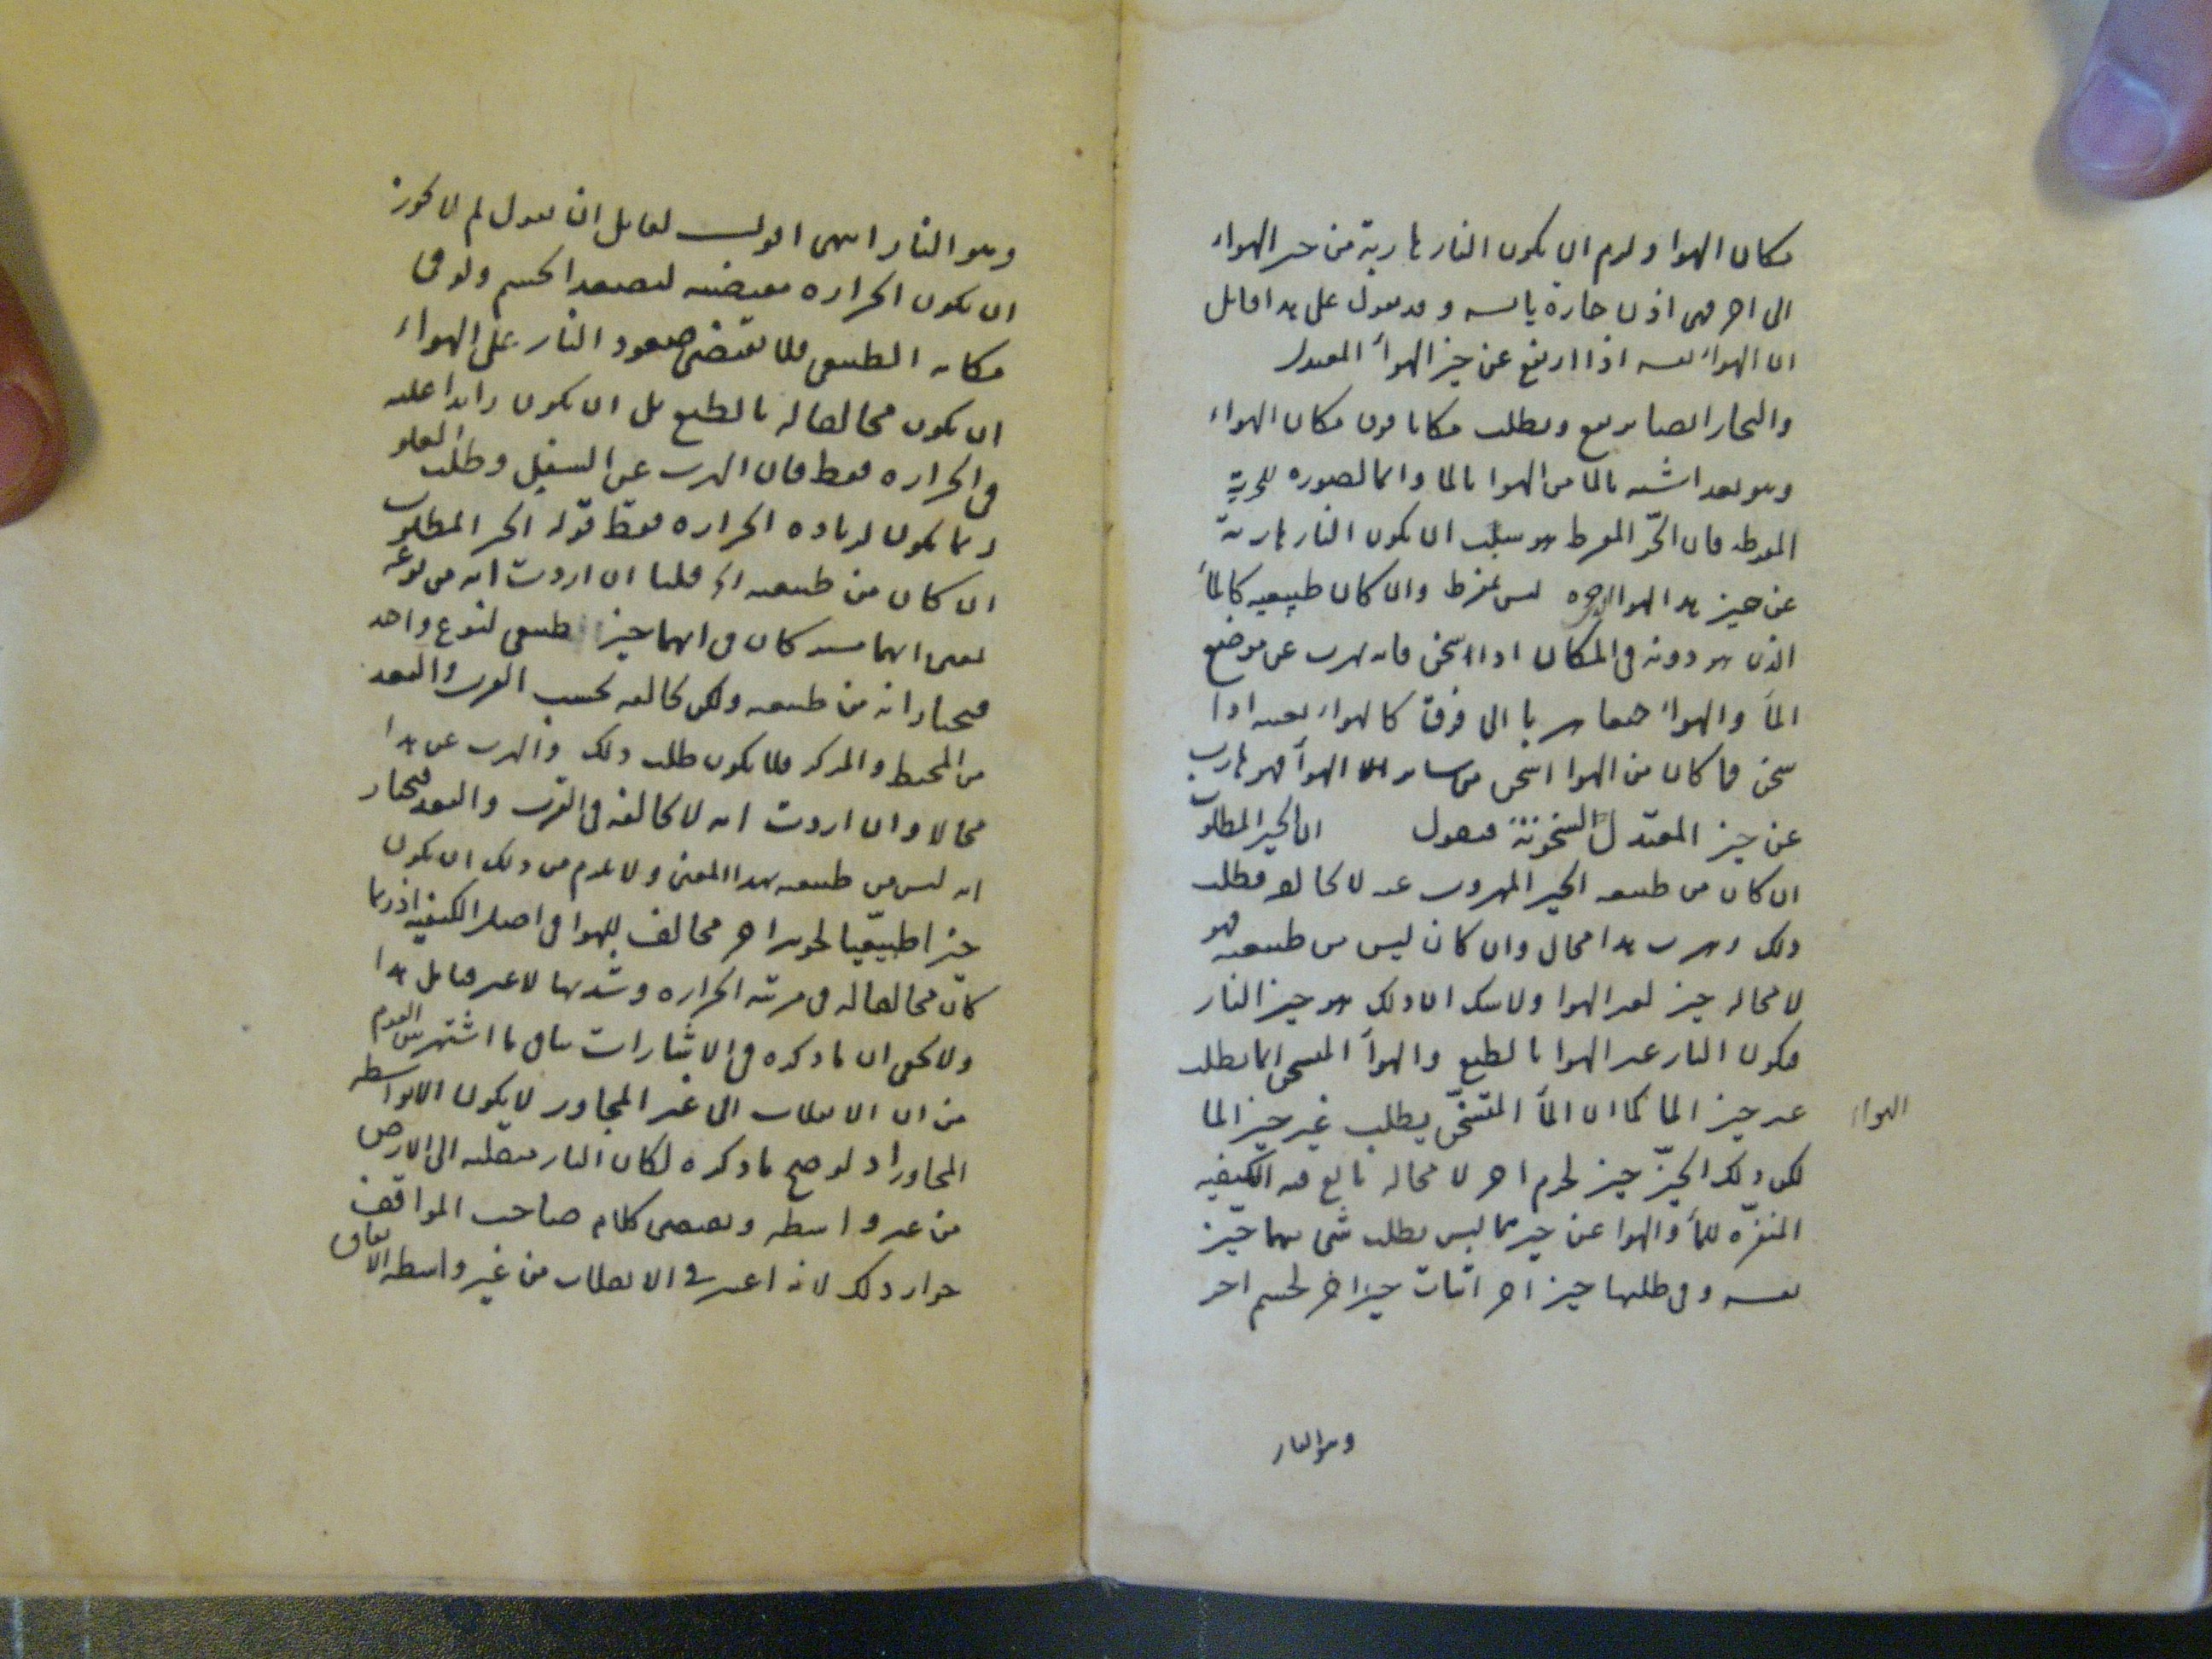 مكان الهوا ولزم ان يكون النار هاربة من حر الهواء
الى اخر فهى اذن حارة يابسه وقد يقول على هذا قايل
ان الهواء نفسه اذا ارتفع عن حيز الهوآء المعتدل
والبخار ايضا يرتفع ويطلب مكانا فوق مكان الهواء
وهو بعد اشبه بالما من الهوا بالما وانما لصوره للحرية
المفرطه فان الحّر المفرط هو سبب ان يكون النار هاربة
عن حيز هذا الهوا الدى حره ليس بمفرط وان كان طبيعيه كالمآ
الذى هو دونه فى المكان اذا سخن فانه يهرب عن موضع
المآ والهواء جميعا هربا الى فوق كالهواء بعينه اذا
سخن فما كان من الهوا اسخن من ساير الهوآ فهو هارب
عن حيز المعتدل السخونة فنقول ان الحيز المطلوب
ان كان من طبيعه الحيز المهروب عنه لا يخالفه فطلب
ذلك وهرب هذا محال وان كان ليس من طبيعته فهو
لا محاله حيز لغير الهوا ولا شك ان ذلك هو حيز النار
فيكون النار غير الهوا بالطبع والهوآ المسخن انما يطلب
غير حيز الما كما ان المآ المتسخّن يطلب غير حيز الما
الهواء
لكن ذلك الحيّز حيز لجرم اخر لا محاله بالغ فيه الكيفيه
المنفّره للمآ والهوا عن حيزهما ليس يطلب شى منهما حيّز
نفسه وفى طلبهما حيز اخر اثبات حيز اخر لجسم اخر
وهو النار
وهو النار انتهى اقول لقايل ان يقول لم لا يجوز
ان يكون الحراره مقتضيه لتصعد الجسم ولو فى
مكانه الطبيعى فلا يقتضى صعود النار على الهواء
ان يكون مخالفا له بالطبع بل ان يكون زايدا عليه
فى الحراره فقط فان الهرب عن السفل وطلب العلو
انما يكون لزياده الحراره فقط قوله الحيز المطلوب
ان كان من طبيعته الخ قلنا ان اردت انه من نوعه
بمعنى انهما مشتركان فى انهما حيز طبيعى لنوع واحد
فيختار انه من طبيعته ولكن يخالفه بحسب القرب والبعد
من المحيط والمركز فلا يكون طلب ذلك والهرب عن هذا
محالا وان اردت انه لا يخالفه فى القرب والبعد فيختار
انه ليس من طبيعته بهذا المعنى ولا يلزم من ذلك ان يكون
حيزا طبيعّيا لجوهر اخر مخالف للهوا فى اصل الكيفيه اذ ربما
كان مخالفا له فى مرتبه الحراره وشدتها لا غير فتامل هذا
ولا يخفى ان ما ذكره فى الاشارات ينافى ما اشتهر بين القوم
من ان الانقلاب الى غير المجاور لا يكون الا بواسطه
المجاور اذ لو صح ما ذكره لكان النار منقلبه الى الارض
من غير واسطه ويقتضى كلام صاحب المواقف
جواز ذلك لانه اعتبر فى الانقلاب من غير واسطه الاتفاق